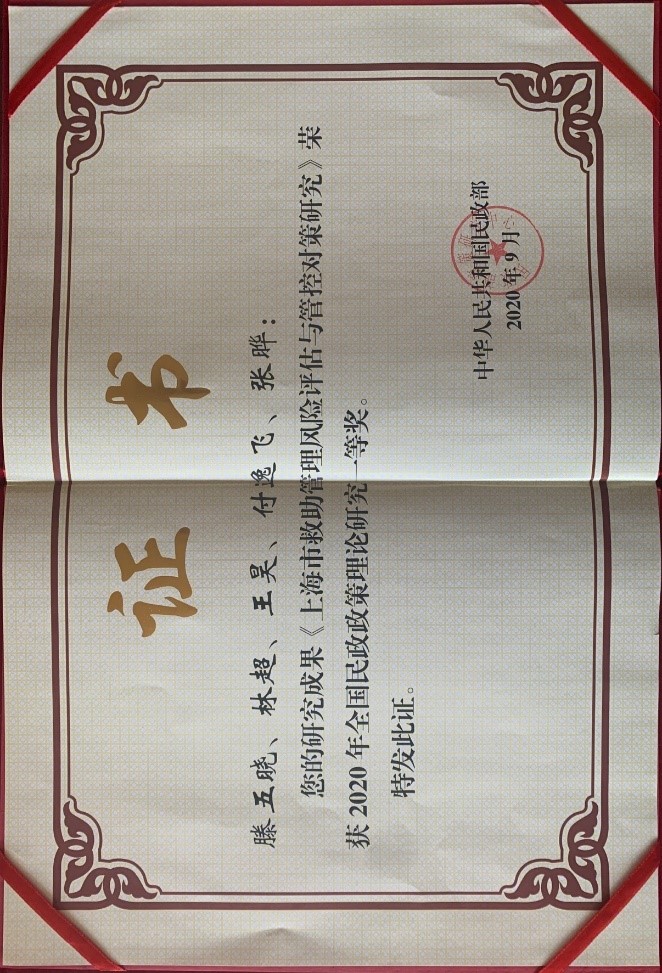 证书
滕五晓、林超、王昊、付逸飞、张晔：
您的研究成果《上海市救助管理风险评估与管控对策研究》荣
获 2020 年全国民政政策理论研究一等奖。
特发此证。
中华人民共和国民政部
2020 年 9 月